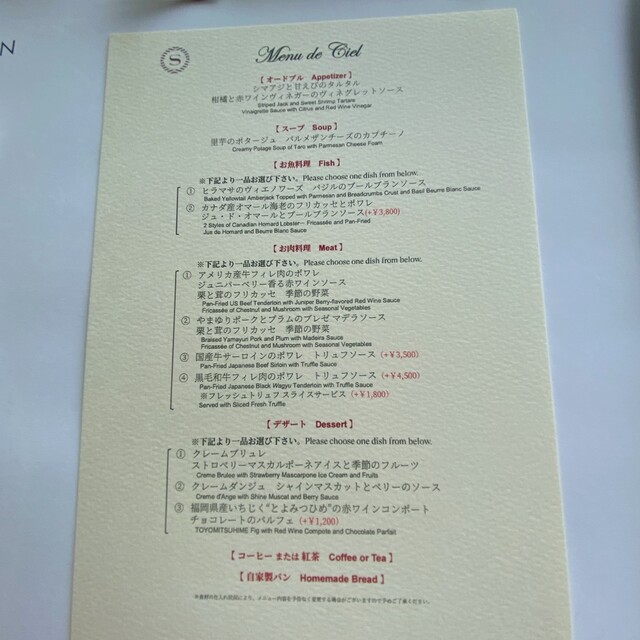 N
S
Menu de Ciel
【 オードブル Appetizer 】
シマアジと甘えびのタルタル
柑橘と赤ワインヴィネガーのヴィネグレットソース
Striped Jack and Sweet Shrimp Tartare
Vinaigrette Sauce with Citrus and Red Wine Vinegar
【 スープ Soup 】
里芋のポタージュ パルメザンチーズのカプチーノ
Creamy Potage Soup of Taro with Parmesan Cheese Foam
【 お魚料理 Fish 】
※下記より一品お選び下さい。Please choose one dish from below.
① ヒラマサのヴィエノワーズ バジルのブールブランソース
Baked Yellowtail Amberjack Topped with Parmesan and Breadcrumbs Crust and Basil Beurre Blanc Sauce
② カナダ産オマール海老のフリカッセとポワレ
ジュ・ド・オマールとブールブランソース(+￥3,800)
2 Styles of Canadian Homard Lobster― Fricassée and Pan-Fried
Jus de Homard and Beurre Blanc Sauce
【 お肉料理 Meat 】
※下記より一品お選び下さい。Please choose one dish from below.
① アメリカ産牛フィレ肉のポワレ
ジュニパーベリー香る赤ワインソース
栗と茸のフリカッセ 季節の野菜
Pan-Fried US Beef Tenderloin with Juniper Berry-flavored Red Wine Sauce
Fricassée of Chestnut and Mushroom with Seasonal Vegetables
② やまゆりポークとプラムのブレゼ マデラソース
栗と茸のフリカッセ 季節の野菜
Braised Yamayuri Pork and Plum with Madeira Sauce
Fricassée of Chestnut and Mushroom with Seasonal Vegetables
③ 国産牛サーロインのポワレ トリュフソース (+￥3,500)
Pan-Fried Japanese Beef Sirloin with Truffle Sauce
④ 黒毛和牛フィレ肉のポワレ トリュフソース (+￥4,500)
Pan-Fried Japanese Black Wagyu Tenderloin with Truffle Sauce
※フレッシュトリュフ スライスサービス (+￥1,800)
Served with Sliced Fresh Truffle
【 デザート Dessert 】
※下記より一品お選び下さい。Please choose one dish from below.
① クレームブリュレ
ストロベリーマスカルポーネアイスと季節のフルーツ
Creme Brulee with Strawberry Mascarpone Ice Cream and Fruits
② クレームダンジュ シャインマスカットとベリーのソース
Creme d'Ange with Shine Muscat and Berry Sauce
③ 福岡県産いちじく“とよみつひめ”の赤ワインコンポート
チョコレートのパルフェ (+￥1,200)
TOYOMITSUHIME Fig with Red Wine Compote and Chocolate Parfait
【 コーヒー または 紅茶 Coffee or Tea 】
【 自家製パン Homemade Bread 】
※食材の仕入れ状況により、メニュー内容を予告なく変更する場合がございますので予めご了承ください。